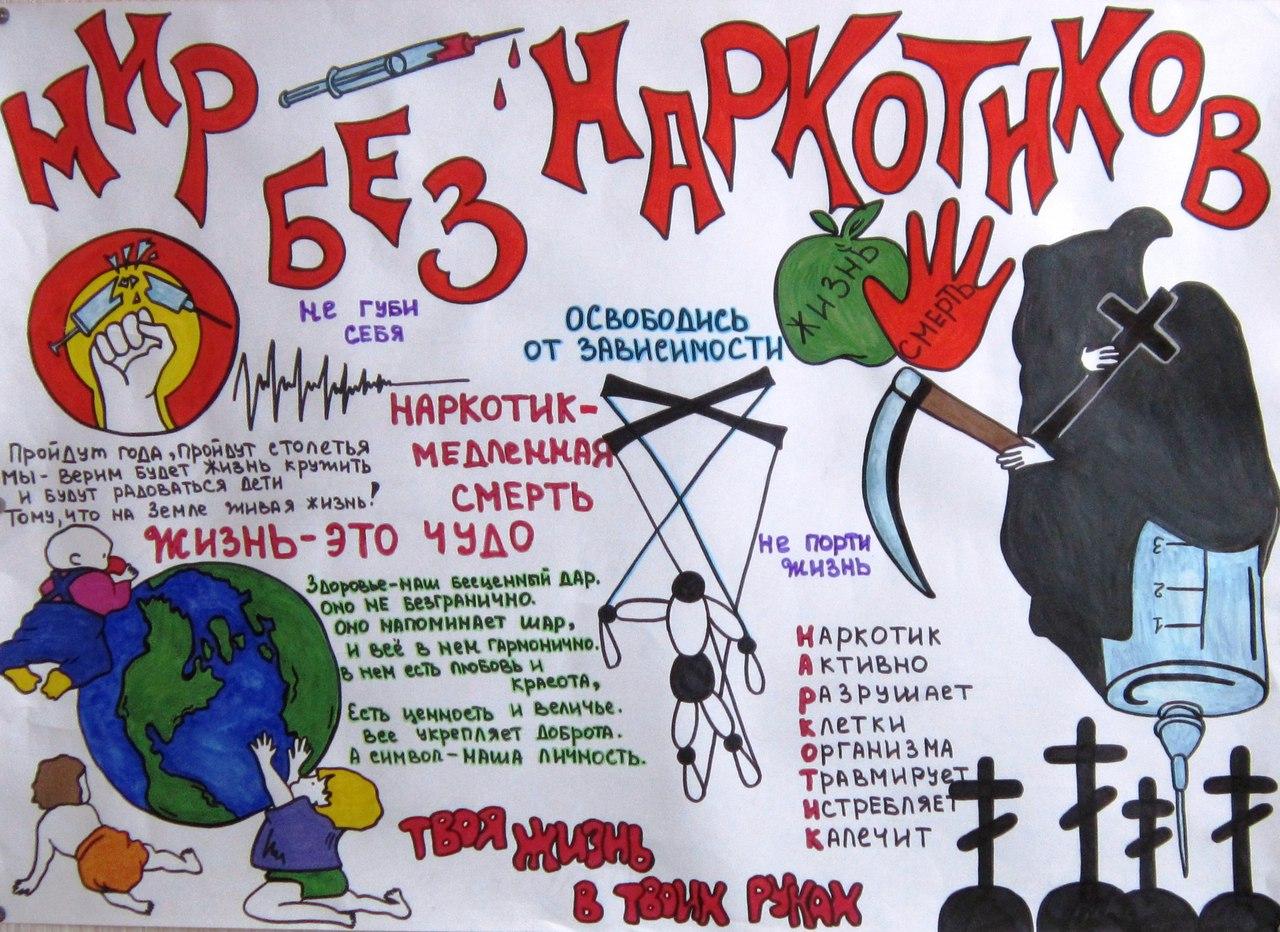 МИР БЕЗ НАРКОТИКОВ
НЕ ГУБИ
СЕБЯ
ОСВОБОДИСЬ
ОТ ЗАВИСИМОСТИ
ЖИЗНЬ
СМЕРТЬ
НАРКОТИК-
МЕДЛЕННАЯ
СМЕРТЬ
Пройдут года, пройдут столетья
Мы - верим будет жизнь кружить
и будут радоваться дети
Тому, что на Земле живая жизнь!
ЖИЗНЬ-ЭТО ЧУДО
Здоровье-наш бесценный дар.
Оно не безгранично.
Оно напоминает шар,
и всё в нем гармонично.
в нем есть любовь и
красота,
Есть ценность и величье.
Все укрепляет доброта.
А символ-наша личность.
НЕ ПОРТИ
ЖИЗНЬ
3
2
1
НАРКОТИК
АКТИВНО
РАЗРУШАЕТ
КЛЕТКИ
ОРГАНИЗМА
ТРАВМИРУЕТ
ИСТРЕБЛЯЕТ
КАЛЕЧИТ
ТВОЯ ЖИЗНЬ
В ТВОИХ РУКАХ